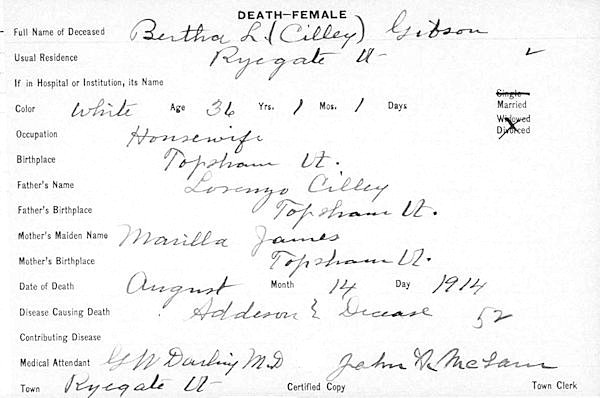 DEATH—FEMALE
Full Name of Deceased Bertha L. (Cilley) Gibson
Usual Residence Ryegate Vt
If in Hospital or Institution, its Name
Color White Age 36 Yrs. 1 Mos. 1 Days
Single
Married
Widowed
Divorced
Occupation Housewife
Birthplace Topsham Vt.
Father's Name Lorenzo Cilley
Father's Birthplace Topsham Vt.
Mother's Maiden Name Marilla James
Mother's Birthplace Topsham Vt.
Date of Death August Month 14 Day 1914
Disease Causing Death Addeson Decease 52
Contributing Disease
Medical Attendant G W Darling M.D John
Town Ryegate Vt Certified Copy Town Clerk